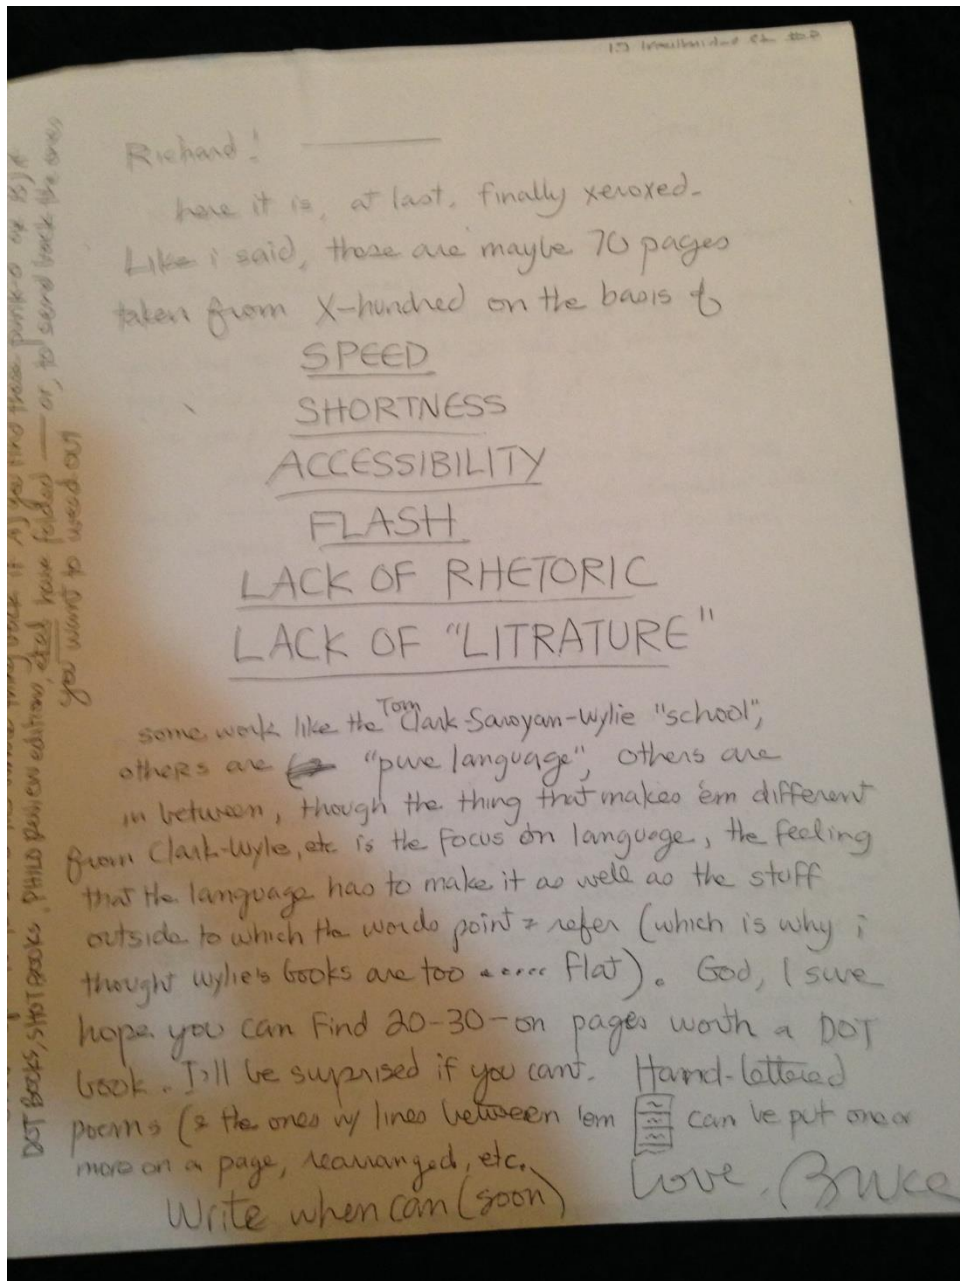 Richard!
here it is, at last, finally xeroxed.
Like i said, these are maybe 70 pages
taken from X-hundred on the basis of
SPEED
SHORTNESS
ACCESSIBILITY
FLASH
LACK OF RHETORIC
LACK OF "LITRATURE"
some work like the Tom Clark-Saroyan-Wylie "school",
others are "pure language", others are
in between, though the thing that makes 'em different
from Clark-Wyle, etc is the focus on language, the feeling
that the language has to make it as well as the stuff
outside to which the words point & refer (which is why i
thought Wylie's books are too ..... flat). God, I sure
hope you can find 20-30-on pages worth a DOT
book. I'll be surprised if you cant. Hand-lettered
poems (& the ones w/ lines between 'em can be put one or
more on a page, rearranged, etc.
Write when can (soon)
Love, Bruce
if A) you find these
DOT BOOKS, SHOT BOOKS, PHILO Review editions, have folded — or, to send back the ones
you want to weed out